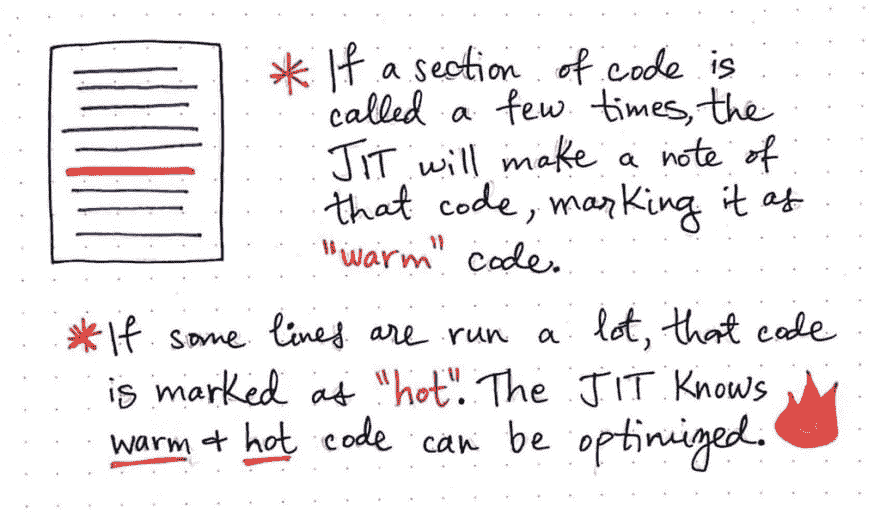 * If a section of code is
called a few times, the
JIT will make a note of
that code, marking it as
"warm" code.
* If some lines are run a lot, that code
is marked as "hot". The JIT knows
warm + hot code can be optimized.